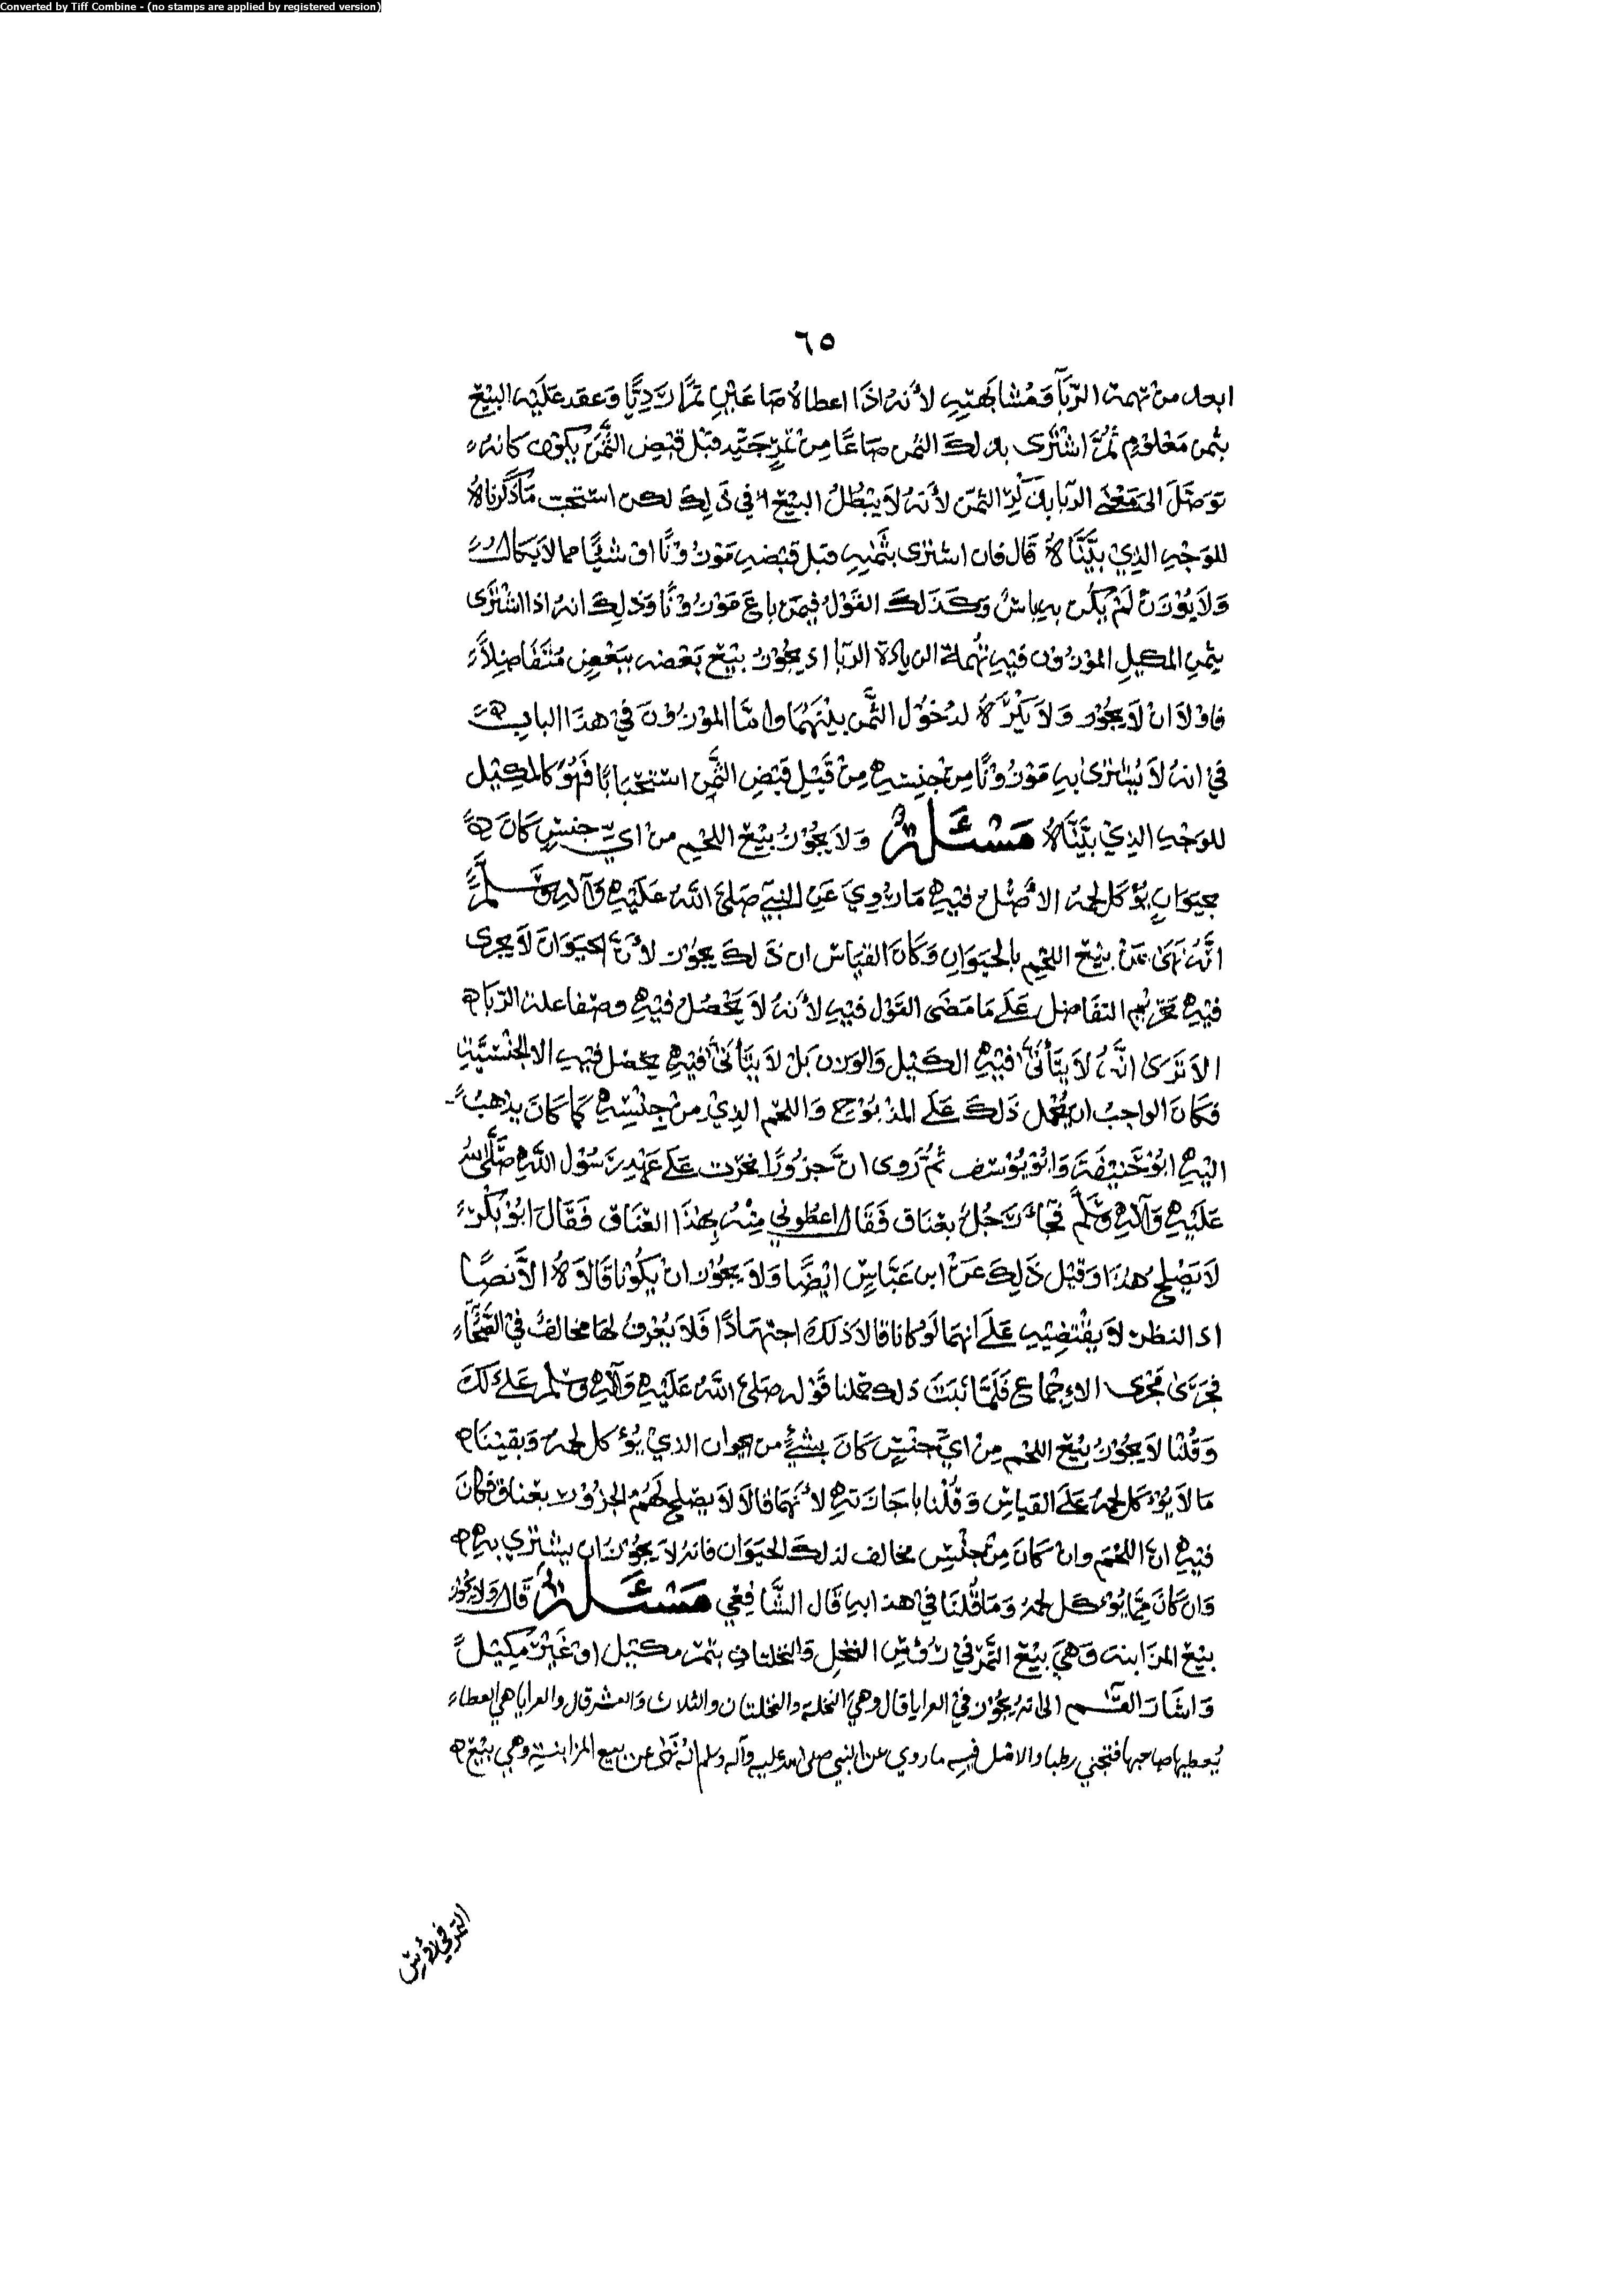 Converted by Tiff Combine - (no stamps are applied by registered version)
٦٥
ابعد من تهمة الرّبا وَمُشابَهتِهِ لأنه اذَا اعطاهُ صَاعَيْنِ تمرًا رَدِيًّا وَعقد عَلَيْهِ البَيْعَ
بثمن مَعْلوْمٍ ثُمَّ اشْتَرَى بذلكَ الثمن صَاعًا مِنْ تمْرٍ جَيّد قَبْل قَبْضِ الثَّمَن يَكوْن كانهُ
توَصَّلَ الى مَعْنَى الرّبا بذكْرِ الثمَن لأنهُ لاَ يَبْطُلُ البَيْع في ذَلِكَ لكن استحب مَا ذكَرناهُ
للوَجْهِ الذِيْ بيَّنَّاهُ قَال فان اشترَى بثَمَنِهِ قبل قبْضهِ مَوْزُوْنًا اوْ شَيْئًا مما لاَ يكال
وَلاَ يُوْزَنُ لَمْ يَكُن بهِ بَاسٌ وَكَذَلكَ القَوْلُ فيْمَن باعَ مَوْزُوْنًا وَذلِكَ انهُ اذا اشْتَرَى
بثمَنِ المكيلِ الموْزوْن فَفِيْهِ تُهْمَة الزيادَة الربا اذ يجُوْزُ بَيْع بَعْضه ببَعْضٍ مُتَفَاضِلاً
فاوْلاَ انْ لاَ يجُوْز وَلاَ يَكْرَهُ لدخُوْل الثَّمَن بيْنَهُمَا وامَّا الموْزُوْن في هذا الباب
فيْ انهُ لاَ يُشترَى بهِ مَوْزُوْنًا مِنْ جِنْسِهِ مِنْ قَبْلِ قَبْضِ الثَّمن استحْبَابًا فَهُوَ كالمكِيْل
للوَجْهِ الذِيْ بَيَّنَّاهُ مَسْئَلَةٌ وَلاَ يجُوْزُ بَيْع اللحْم من ايّ جنسٍ كَانَ
بحيَوَانٍ يؤْكَل لحمهُ الأصْلُ فيْهِ مَا رُوِيَ عَن النبيّ صَلى اللهُ عَلَيْهِ وَآله وسَلمَّ
انَّهُ نَهَى عَنْ بَيْع اللحْمِ بالحيَوَانِ وَكَانَ القيَاسُ ان ذَلكَ يجُوْز لأنَّ الحيَوَانَ لاَ يجرى
فيْهِ تحريْم التفَاضل عَلَى مَا مَضَى القَوْل فيْهِ لأنهُ لاَ يَحْصُلُ فيْهِ وصْفا علة الرّبَا
الاَ تَرَى انَّهُ لاَ يتَأتىَّ فيْهِ الكَيْل وَالوزن بَلْ لاَ يتَأتىَّ فيْهِ يحصل فيْهِ الا الجنْسيَّة
فكانَ الواجب ان يُحْمل ذَلكَ عَلَى المذْبُوْح وَاللحم الذِيْ مِنْ جِنْسِهِ كمَا كَانَ يذْهَبُ
اليْهِ ابُوْ حَنِيْفَةَ وَابُوْ يُوْسُف ثُمَّ رَوى انَّ جزُوْرًا نحرَت عَلَى عَهْدِ رَسُوْل اللهِ صَلَّى اللهُ
عَلَيْهِ وَآلهِ وسَلَّم فجاءَ رَجُلٌ بعَناق فَقَال اعطُوني مِنْهُ بهَذَا العَنَاق فَقَالَ ابُوْ بَكْر
لاَ يَصْلح هَذا وَقيْل ذَلِكَ عَنْ ابن عَبَّاسٍ ايْضًا وَلاَ يجُوْز انْ يَكُوْنا قَالاَهُ الاَّ نصًّا
اذ النظر لاَ يقْتَضِيْهِ عَلَى انهمَا لَوْ كَانا قَالا ذلكَ اجتهَادًا فَلاَ يُعْرَفُ لهمَا مخالفٌ فيْ الصَّحَابة
فجَرَى مَجْرَى الاجماع فَلَمَّا ثبَتَ ذلك حملنا قَوْله صَلى اللهُ عَلَيْهِ وَآلهِ وسلم عَلى ذلكَ
وَقُلْنا لاَ يجُوْزُ بَيْع اللحْم مِنْ ايّ جنْسٍ كَانَ بشيْءٍ من الحيوان الذِيْ يُؤكل لحمهُ وَبقيْنَا
مَا لاَ يُؤكل لحمهُ عَلَى القيَاسِ وَقُلْنا باجَازَتهِ لأنهُمَا قَالاَ لاَ يصْلح لَحْمُ الجزُوْر بعَناق فَكانَ
فيْهِ انَّ اللحْمَ وانْ كَانَ مِنْ جنْسٍ مخالف لذلكَ الحيَوَان فانهُ لاَ يجُوْز ان يشترَي بهِ
وَان كَانَ مِمَّا يُؤكل لحمهُ وَمَا قُلْنَا فيْ هذا بهِ قَال الشَّافعِي مَسْئَلَةٌ قَال وَلاَ يجُوْز
بَيْع المزَابنة وَهيَ بَيْع التَّمْر فيْ رُؤسِ النخلِ وَالنخلتان بتمْر مكيْل اوْ غَيْر مكيْل
وَاشَارَ القَاسم الى انهُ يجُوْز فيْ العرايا قال وهيَ النخلة والنخلتان والثلاث وَالعشر قال والعرايا هي العطاء
يُعطيها صاحبها فتجني رطبا والاصل فيه ما روي عن النبي صلى الله عليه وآله وسلم انهُ نهَى عن بيع المزابنة وهي بيْع
التمر في رؤس